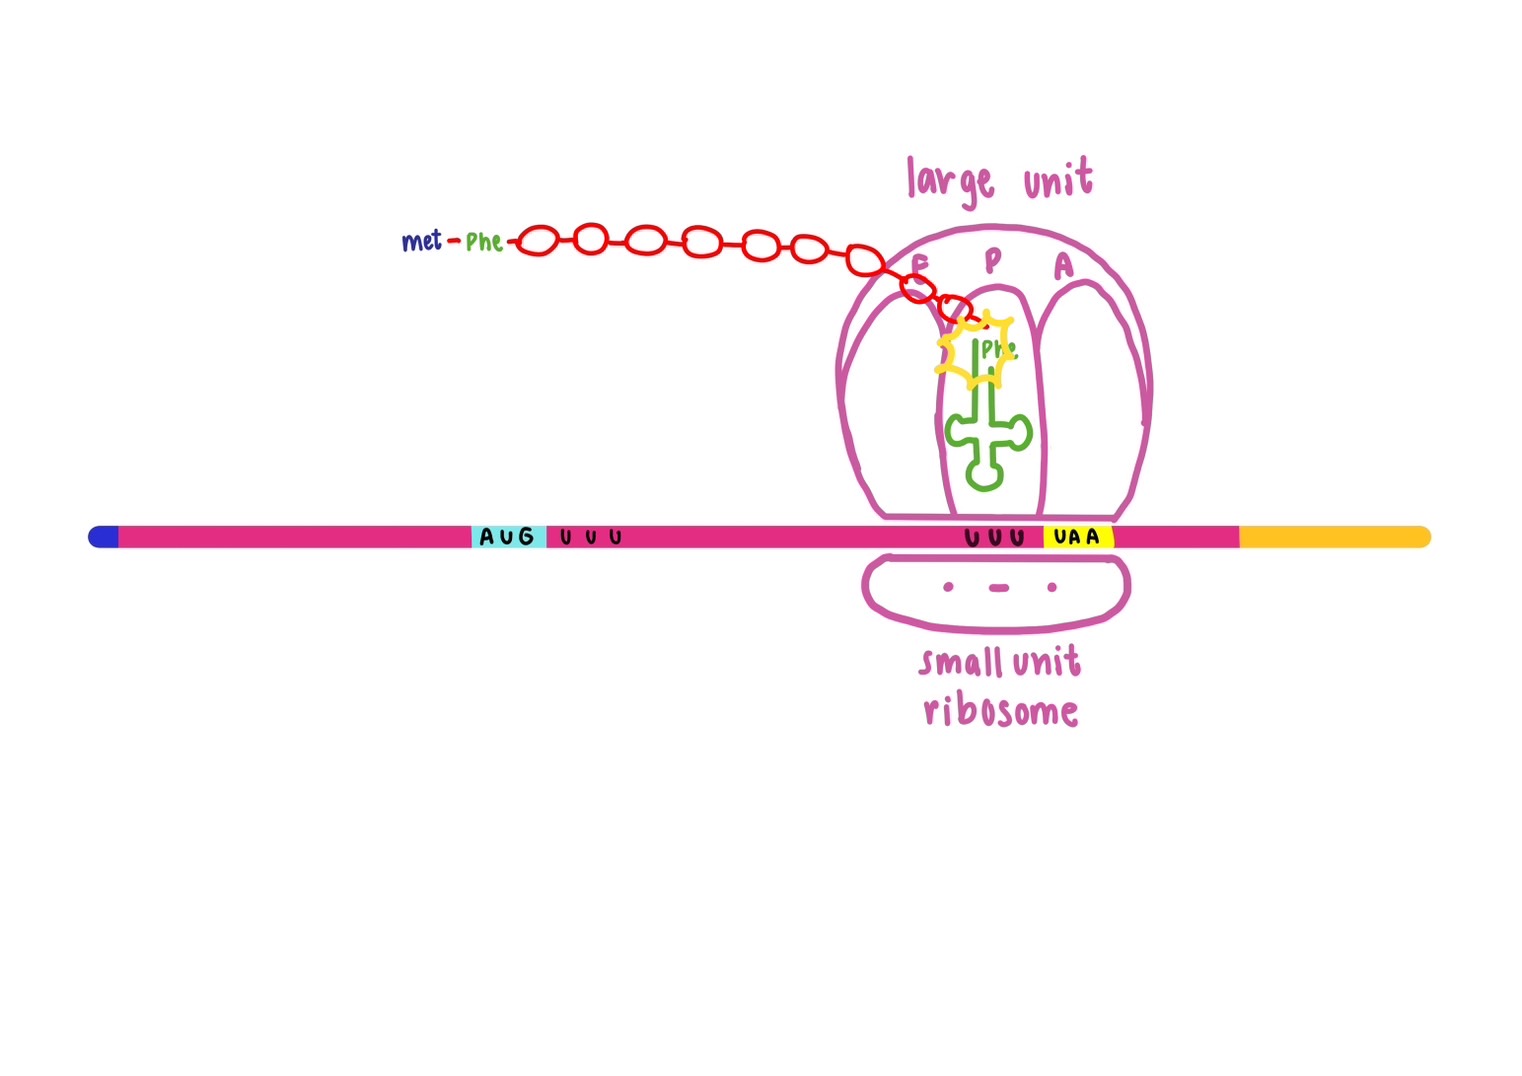 large unit
met - Phe
E P A
Phe
AUG UUU UUU UAA
small unit
ribosome